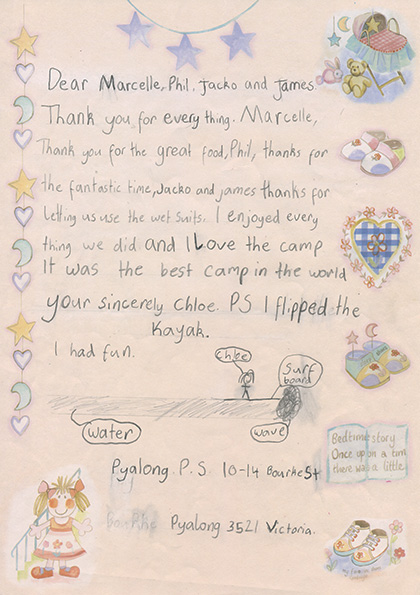 Dear Marcelle, Phil, Jacko and James.
Thank you for every thing. Marcelle,
Thank you for the great food, Phil, thanks for
the fantastic time, Jacko and james thanks for
letting us use the wet suits. I enjoyed every
thing we did and I Love the camp
It was the best camp in the world
your sincerely Chloe. PS I flipped the
Kayak.
I had fun.
chloe
Surf
board
water
wave
Bedtime story
Once upon a time
there was a little
Pyalong P.S. 10-14 Bourke St
Pyalong 3521 Victoria.